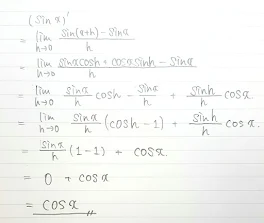 (sin x)'
= lim h→0 sin(x+h) - sin x / h
= lim h→0 sin x cosh + cos x sinh - sin x / h
= lim h→0 sin x / h cosh - sin x / h + sinh / h cos x
= lim h→0 sin x / h (cosh - 1) + sinh / h cos x.
= sin x / h (1-1) + cos x.
= 0 + cos x
= cos x